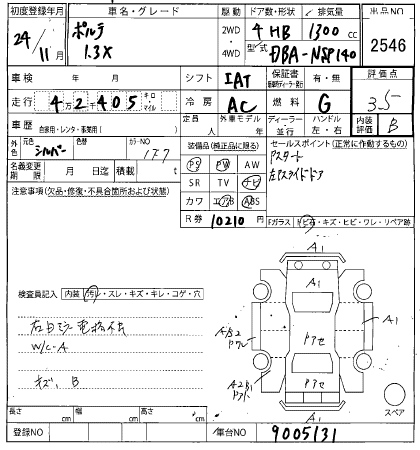 初度登録年月 車名・グレード 駆動 ドア数・形状 排気量 出品NO
24/11月 ポルテ 1.3X 2WD・4WD 4HB 1300cc 2546
型式 DBA-NSP140
車検 年 月 シフト IAT 保証書 有・無 評価点
走行 4万2千405 キロ・マイル 冷房 AC 燃料 G 3.5
車歴 自家用・レンタ・事業用( ) 外車モデル 年 ディーラー 並行 ハンドル 左・右 内装評価 B
外色 元色 シルバー 色替 カラーNO 177 装備品(純正品に限る) セールスポイント(正常に作動するもの)
名義変更期限 月 日迄 積載 t PS PW AW Pスタート
SR TV ナビ 左Pスライドドア
注意事項(欠品・修復・不具合箇所および状態) カワ エアB ABS
R券 10210円 Fガラス トビ石・キズ・ヒビ・ワレ・リペア跡
A1
A1
検査員記入 内装 汚レ・スレ・キズ・キレ・コゲ・穴
右自ミラー電格
W/C-A
キズ、B
Pアセ
A1
スペア
長さ cm 幅 cm 高さ cm
登録NO 車台NO 9005131